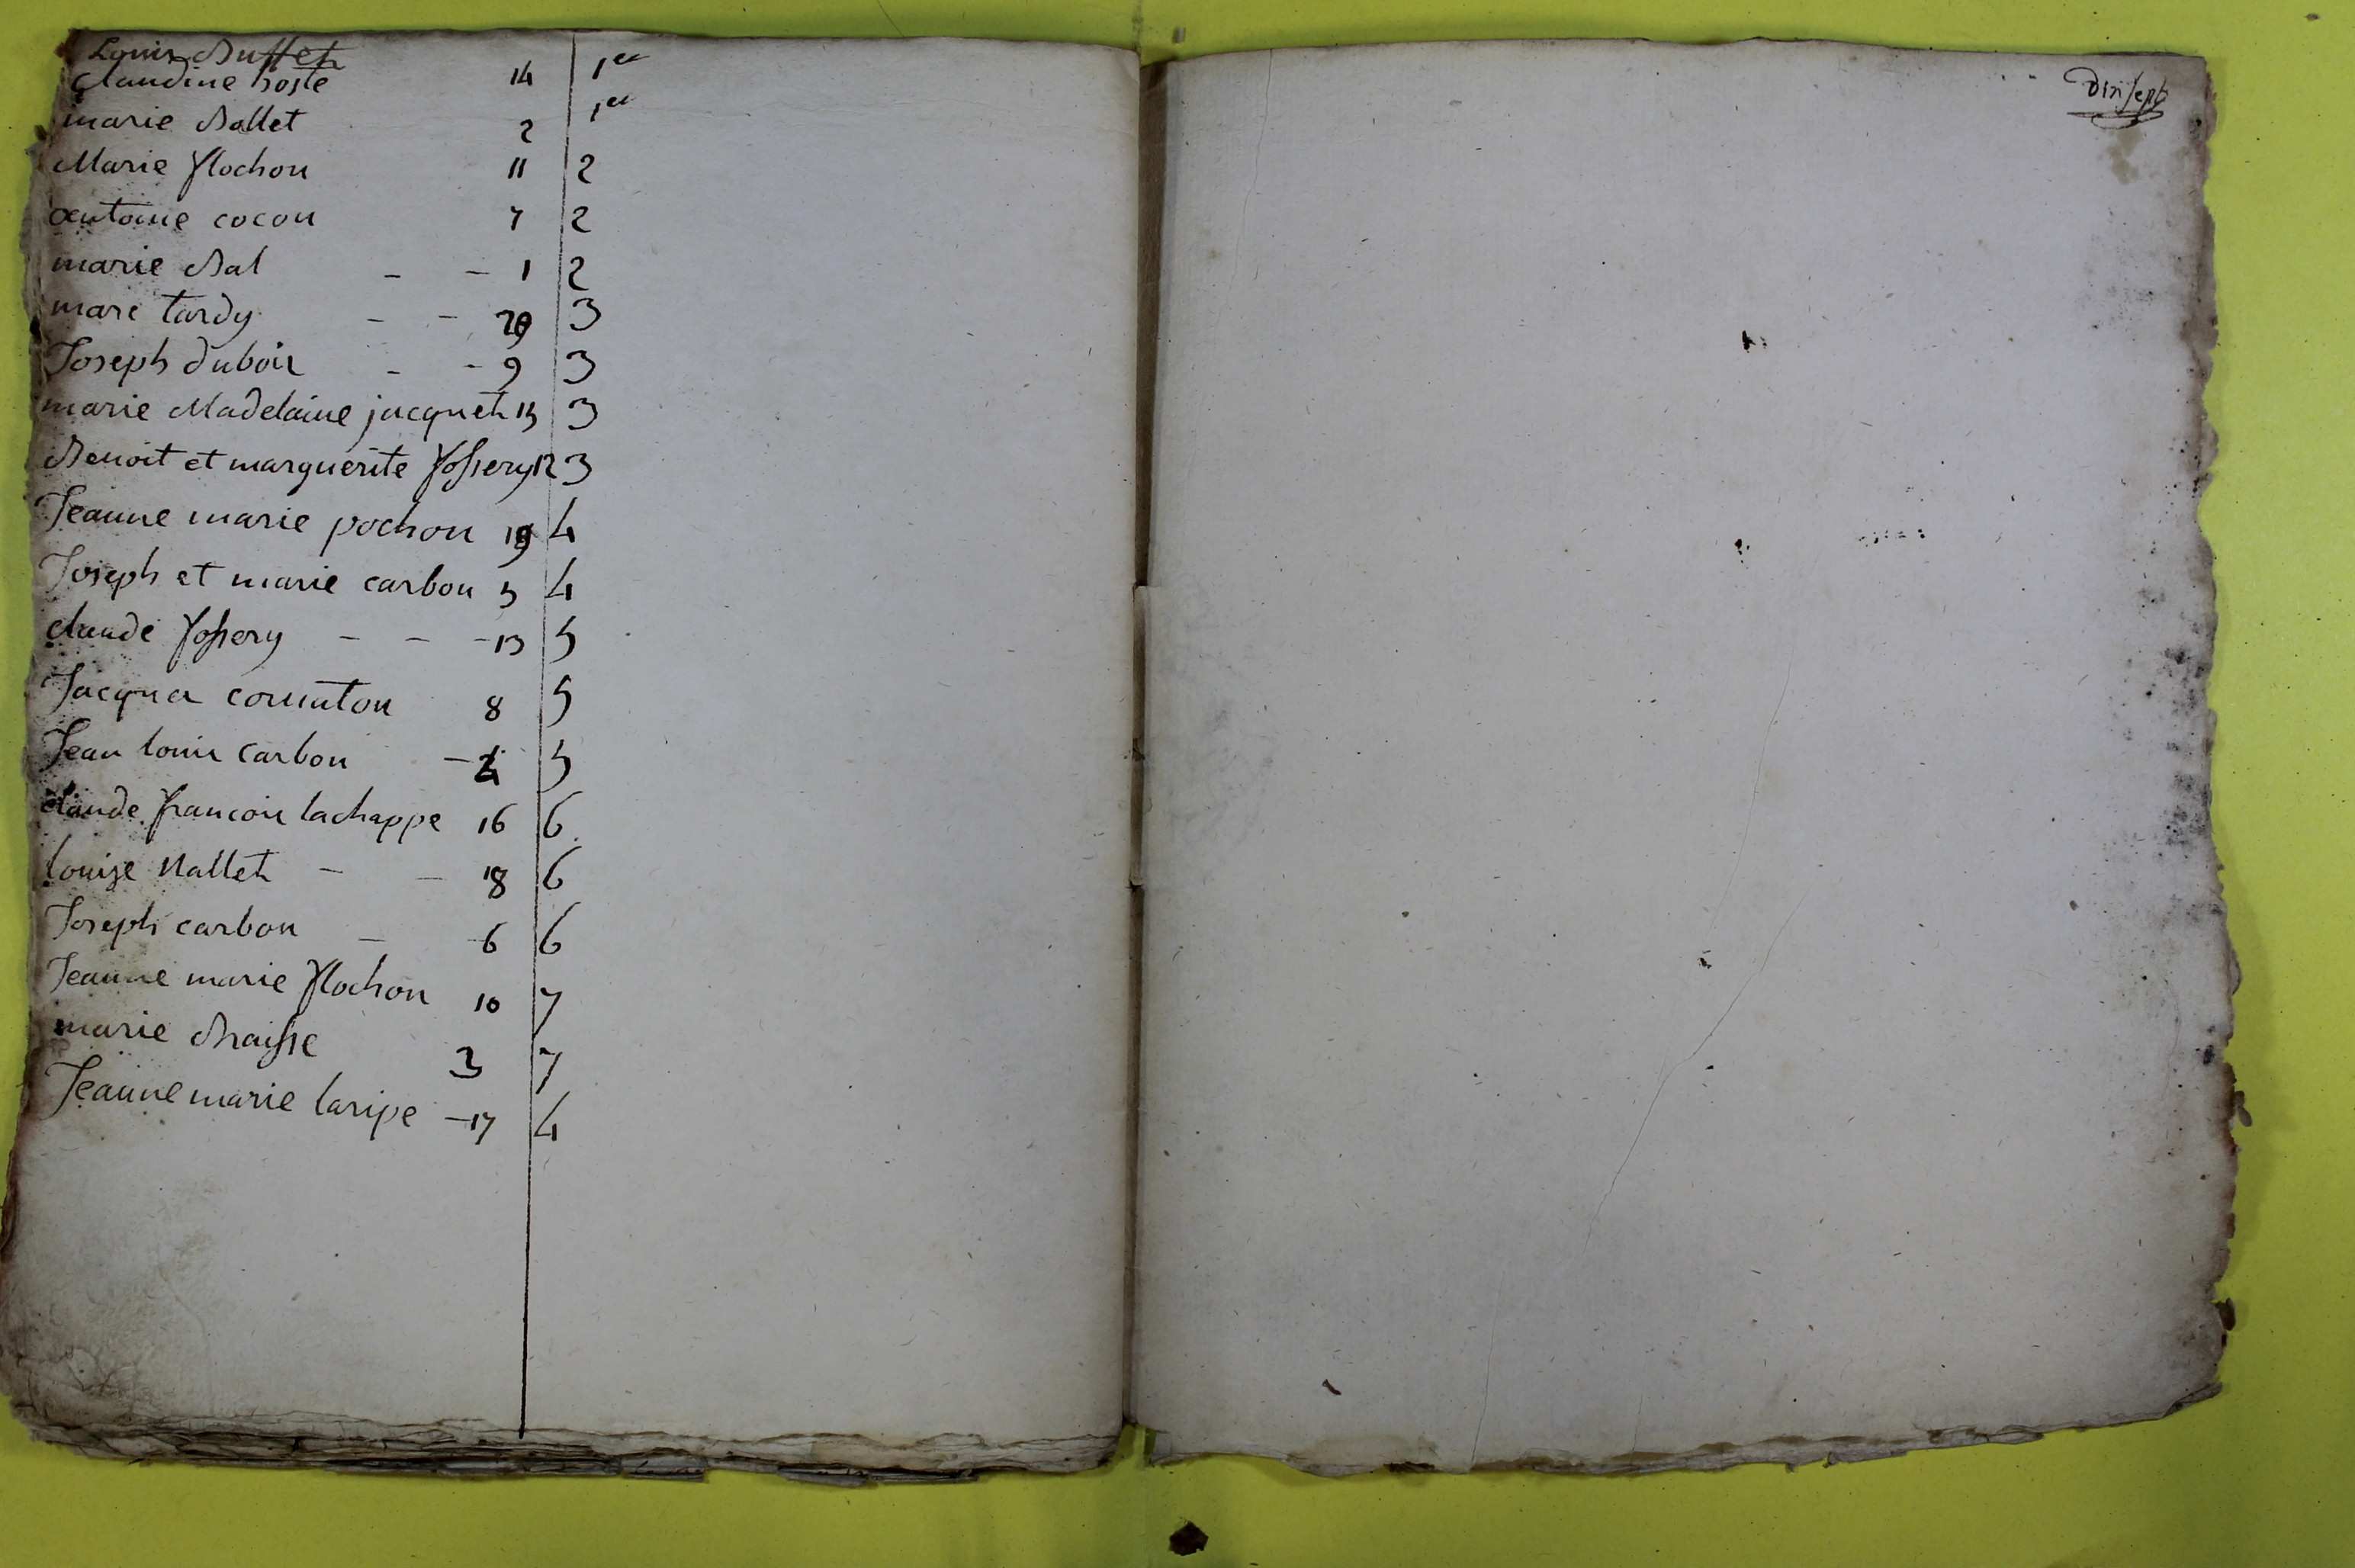 Louis Buffet
claudine hoste 14 1er
marie Ballet 2 1er
Marie flochon 11 2
antoine cocon 7 2
marie Bal - - 1 2
marie tardy - - 20 3
Joseph dubois - - 9 3
marie Madelaine jacquet 15 3
Benoit et marguerite fossery 12 3
Jeanne marie pochon 19 4
Joseph et marie carbon 5 4
claude fossery - - - 13 5
Jacques cornaton 8 5
Jean louis carbon - 4 5
claude francois lachappe 16 6
louise Nallet - - 18 6
Joseph carbon - 6 6
Jeanne marie flochon 10 7
marie Braisse 3 7
Jeanne marie laripe - 17 4
dixsept